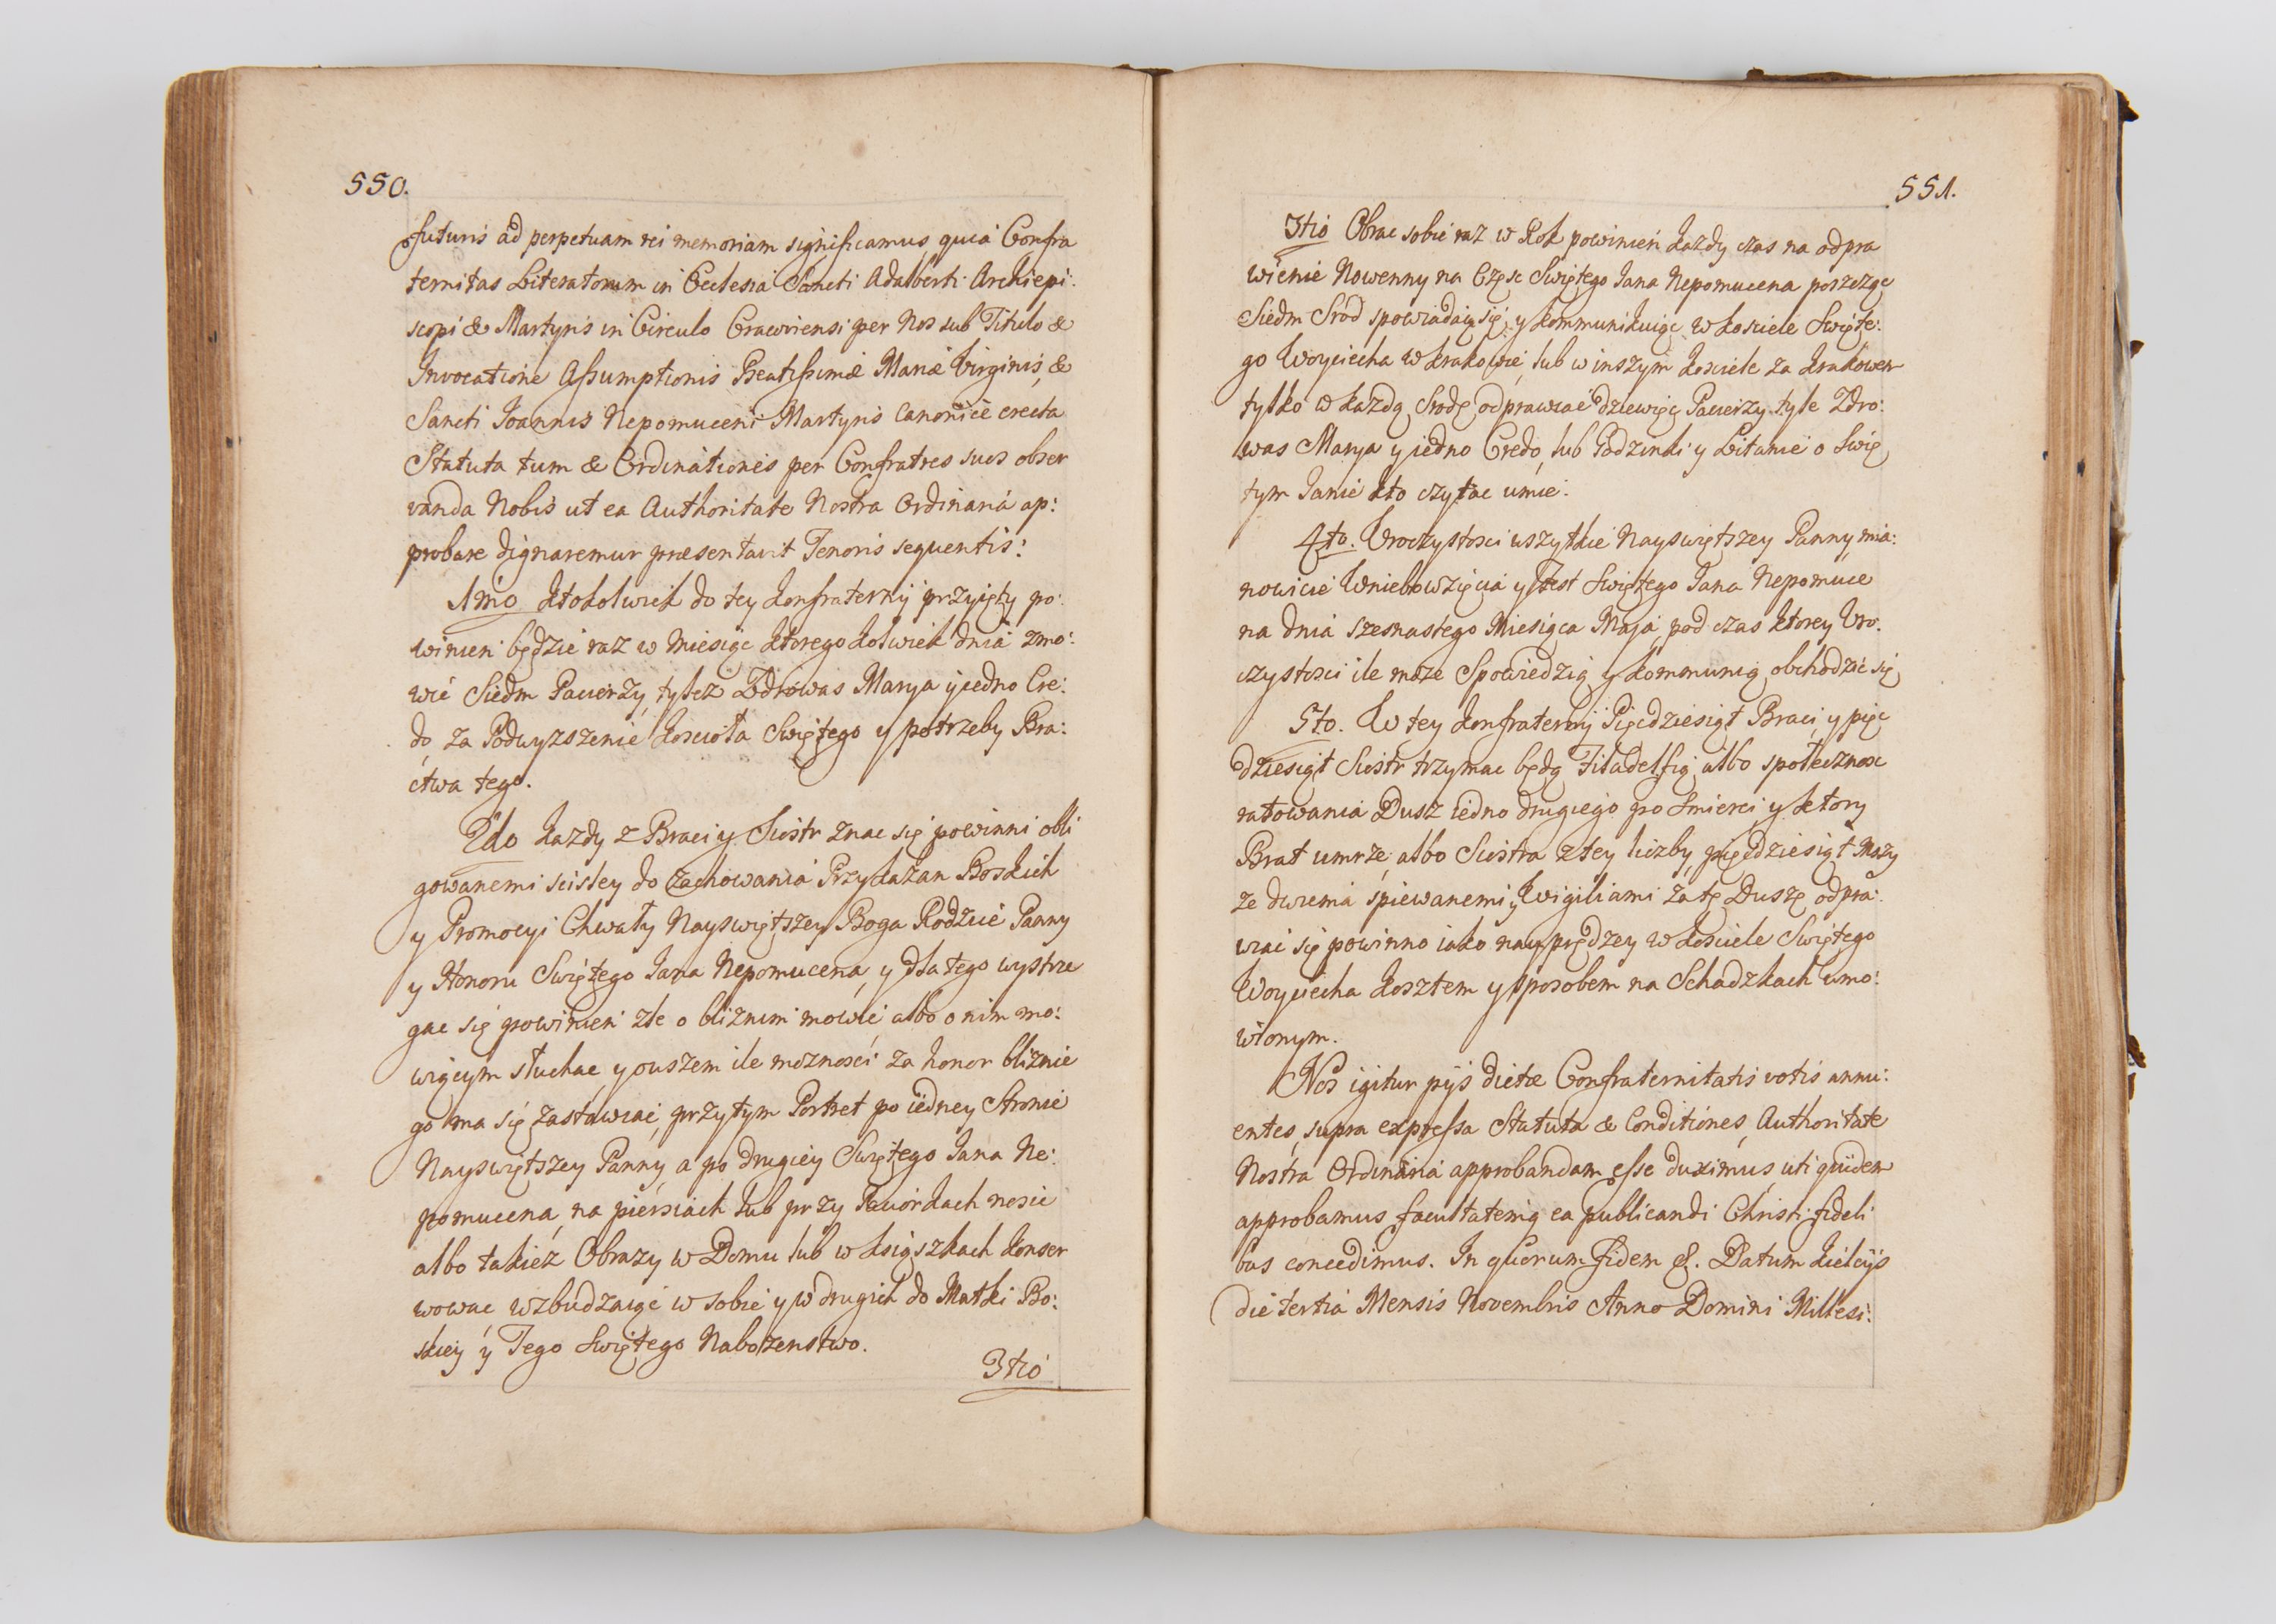 550.
futuris ad perpetuam rei memoriam significamus quia Confra
ternitas Literatorum in Ecclesia Sancti Adalberti Archiepi:
scopi & Martyris in Circulo Cracoviensi per Nos sub Titulo &
Invocatione Assumptionis Beatissimæ Mariæ Virginis, &
Sancti Joannis Nepomuceni Martyris Canonicè erecta
Statuta tum & Ordinationes per Confratres suos obser
vanda Nobis ut ea Authoritate Nostra Ordinaria ap:
probare dignaremur præsentavit Tenoris sequentis:
1mo Ktokolwiek do tey Konfraternij przyięty po:
winien będzie raz w Miesiąc ktoregokolwiek dnia zmo:
wić Siedm Pacierzy, tylez Zdrowas Marya y iedno Cre:
do, za Podwyzszenie Koscioła Swiętego y potrzeby Bra:
ctwa tego.
2do Kazdy z Braci y Siostr znac się powinni obli
gowanemi scisley do zachowania Przykazan Boskich
y Promocyi Chwały Nayswiętszey Boga Rodzicie Panny
y Honoru Swiętego Jana Nepomucena, y dla tego wystrze
gac się powinien zle o bliznim mowić albo o nim mo:
wiącym słuchac, y owszem ile moznosći za honor bliznie
go ma się zastawiać, przytym Portret po iedney Stronie
Nayswiętszey Panny, a po drugiey Swiętego Jana Ne:
pomucena, na piersiach lub przy Paciorkach nosic
albo takiez Obrazy w Domu lub w ksiąszkach konser
wowac wzbudzaiąc w sobie y w drugich do Matki Bo:
skiey y Tego Swiętego Nabozenstwo.
3tio
551.
3tio Obrac sobie raz w Rok powinien kazdy czas na odpra
wienie Nowenny na Częsc Swiętego Jana Nepomucena poszcząc
Siedm Srod spowiadaiąc się, y kommunikuiąc w kosciele Swięte:
go Woyciecha w krakowie, lub w inszym kosciele za krakowem
tylko w kazdą Srodę odprawiać dziewięc Pacierzy, tyle Zdro:
was Marya y iedno Credo, lub Godzinki y Litanie o Swię
tym Janie kto czytac umie.
4to. Uroczystosci wszytkie Nayswiętszey Panny, mia:
nowicie Wniebowzięcia y Fest Swiętego Jana Nepomuce
na dnia szesnastego Miesiąca Maja, pod czas ktorey Uro:
czystosci ile moze Spowiedzią y kommunią obchodzic się
5to. W tey Konfraternij Pięcdziesiąt Braci, y pięc
dziesiąt Siostr trzymac będą Filadelfią albo społecznosc
ratowania Dusz iedno drugiego po smierci, y ktory
Brat umrze, albo Siostra z tey liczby, pięcdziesiąt Mszy
ze dwiema spiewanemi y Wigiliami za tę Duszę odpra:
wiać się powinno iako nayprędzey w kosciele Swiętego
Woyciecha kosztem y sposobem na Schadzkach umo:
wionym.
Nos igitur pijs dictæ Confraternitatis votis annu:
entes, supra expressa Statuta & Conditiones, Authoritate
Nostra Ordinaria approbandam esse duximus, uti quidem
approbamus, facultatemq ea publicandi Christi fideli
bus concedimus. In quorum fidem &. Datum Kielcijs
die tertia Mensis Novembris Anno Domini Millesi: